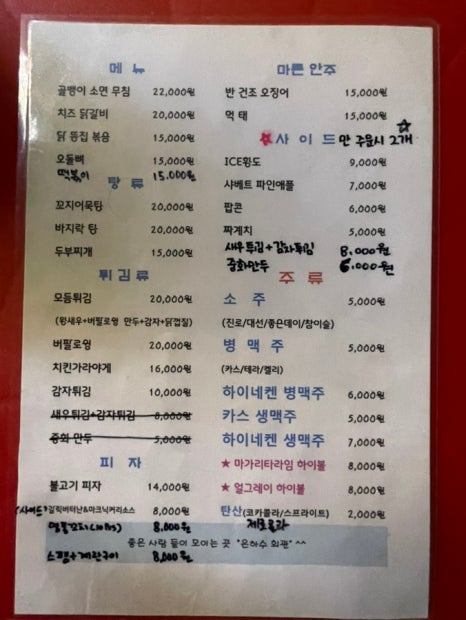 메 뉴
골뱅이 소면 무침 22,000원
치즈 닭갈비 20,000원
닭 똥집 볶음 15,000원
오돌뼈 15,000원
떡볶이 15.000원
탕 류
꼬지어묵탕 20,000원
바지락 탕 20,000원
두부찌개 15,000원
튀김류
모듬튀김 20,000원
(왕새우+버팔로윙 만두+감자+닭껍질)
버팔로윙 20,000원
치킨가라아게 16,000원
감자튀김 10,000원
새우튀김+감자튀김 8,000원
중화 만두 5,000원
피 자
불고기 피자 14,000원
(사이드) 갈릭버터난&마크닉커리소스 8,000원
염통꼬치(10pcs) 8,000원
스팸+계란구이 8,000원
마른 안주
반 건조 오징어 15,000원
먹 태 15,000원
★사 이 드만 주문시 2개☆
ICE황도 9,000원
샤베트 파인애플 7,000원
팝콘 6,000원
짜계치 5,000원
새우튀김+감자튀김 8.000원
중화만두 6.000원
주 류
소 주 5,000원
(진로/대선/좋은데이/참이슬)
병 맥주 5,000원
(카스/테라/켈리)
하이네켄 병맥주 6,000원
카스 생맥주 5,000원
하이네켄 생맥주 7,000원
★ 마가리타라임 하이볼 8,000원
★ 얼그레이 하이볼 8,000원
탄산(코카콜라/스프라이트) 2,000원
제로콜라
좋은 사람 들이 모이는 곳 "은하수 회관" ^^